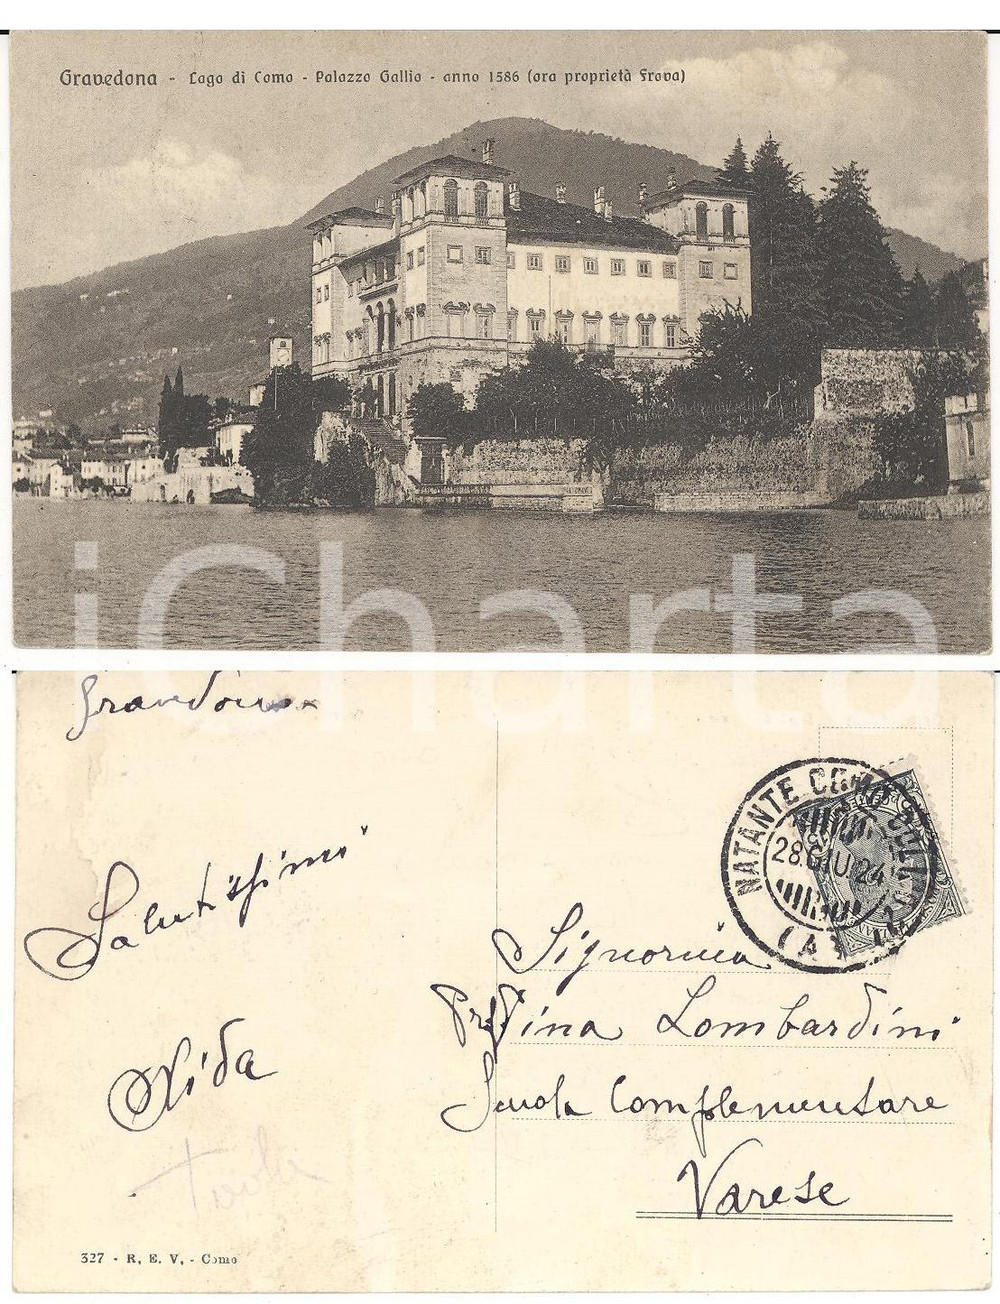 Gravedona - Lago di Como - Palazzo Gallio - anno 1586 (ora proprietà Frova)
iCharta
Gravedona
Salutissimi
Nida
NATANTE COMO COLICO
28.GIU.24
(A)
Signorina
Prof. Tina Lombardini
Scuola Complementare
Varese
327 - R. E. V. - Como